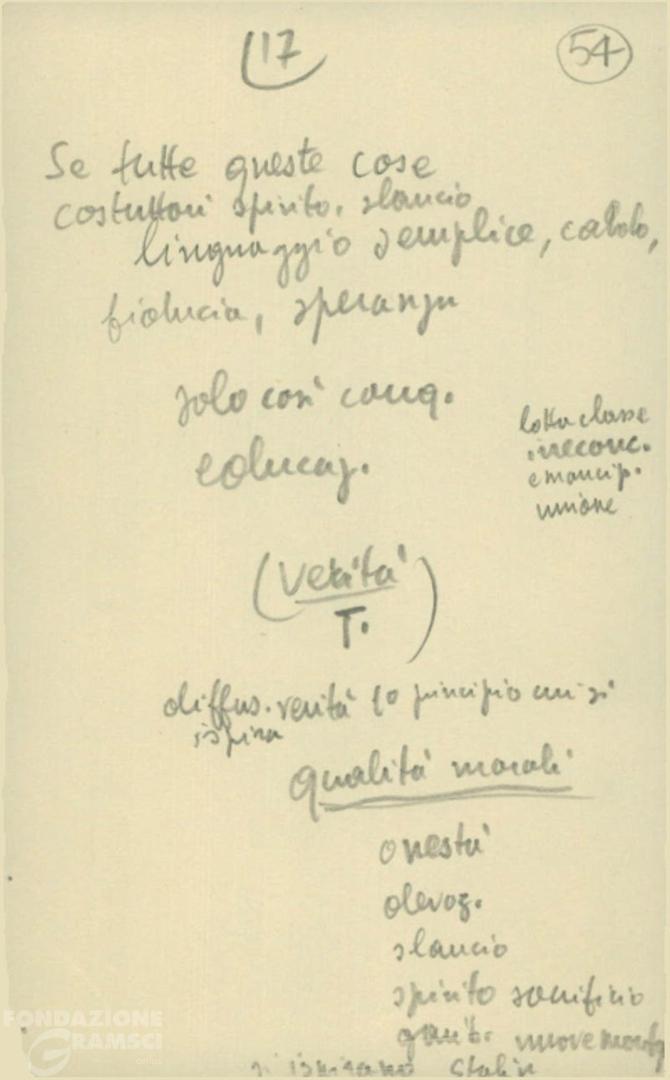 17
54
Se tutte queste cose
costruttori spirito, slancio
linguaggio semplice, caldo,
fiducia, speranza
solo così conq.
educaz.
lotta classe
irreconc.
emancip.
unione
(verità)
T.
diffus. verità 1º principio cui si
ispira
qualità morali
onestà
devoz.
slancio
spirito sacrificio
nuove
si ispirano Stalin
FONDAZIONE
GRAMSCI